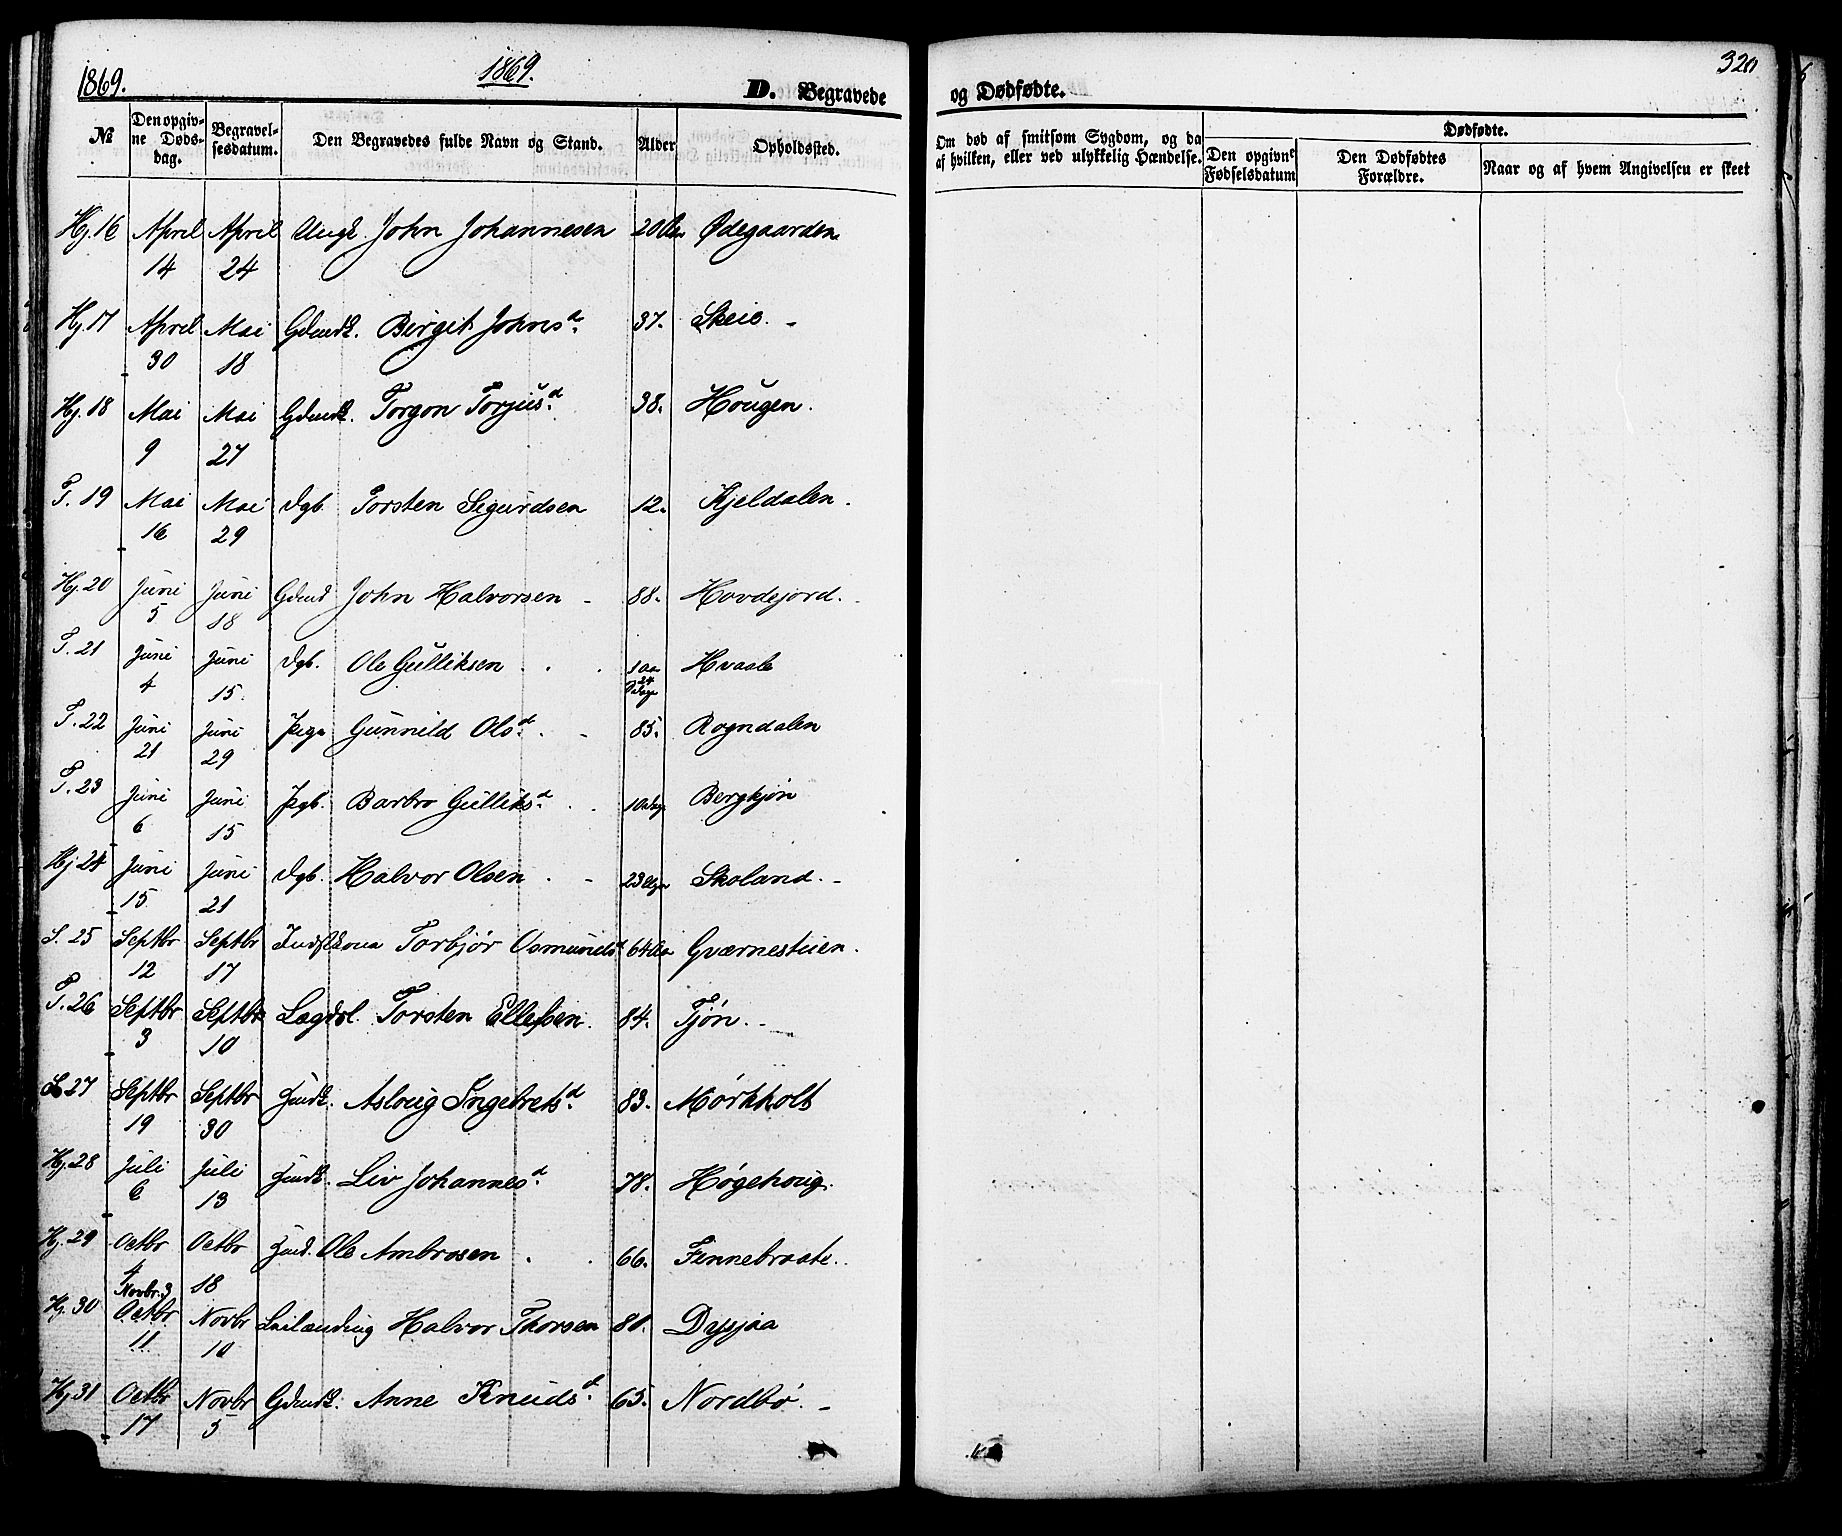 1869.
1869.
D. Begravede
№
Den opgiv-
ne Døds-
dag.
Begravel-
sesdatum.
Den Begravedes fulde Navn og Stand.
Alder
Opholdssted.
Hj. 16 April 14 April 24 Ungk. John Johannesen 20 Aar Ødegaarden
Hj. 17 April 30 Mai 18 Gdmdk. Birgit Johnsd. 37. Skeie. -
Hj. 18 Mai 9 Mai 27 Gdmdk. Torgon Torjusd. 38. Hougen.
T. 19 Mai 16 Mai 29 Dgb. Torsten Sigurdsen 12. Kjeldalen.
Hj. 20 Juni 5 Juni 18 Gdmd John Halvorsen - 88. Hovdejord.
T. 21 Juni 4 Juni 15. Dgb. Ole Gulliksen 1 Aar 24 Dage Hvaale
T. 22 Juni 21 Juni 29 Pige Gunnild Olsd. 85. Rogndalen
T. 23 Juni 6 Juni 15 Pgb. Barbro Gulliksd. Bergkjøn
Hj 24 Juni 15 Juni 21 Dgb. Halvor Olsen 23 Skoland. -
S. 25 Septbr 12 Septbr 17 Torbjør Osmundsd 64 Aar Gværnestuen.
T. 26 Septbr 3 Septbr 10 Lægdsl. Torsten Ellefsen. 84. Tjøn.
S. 27 Septbr 19 Septbr 30 Asloug Ingebretsd. 83. Mørkholt
Hj. 28 Juli 6 Juli 13 Liv Johannesd. 78. Høgehoug.
Hj. 29 Octbr 4 Octbr 18 Ole Ambrosen 66. Finnebraate.
Hj. 30 Novbr. 3 Octbr 11 Novbr 10 Leilænding Halvor Thorsen 80. Dysjaa
Hj 31 Octbr 17 Novbr 5 Gdmdk. Anne Knudsd. 65. Nordbø. -
320
og Dødfødte.
Om død af smitsom Sygdom, og da
af hvilken, eller ved ulykkelig Hændelse.
Dødfødte.
Den opgivne
Fødselsdatum
Den Dødfødtes
Forældre.
Naar og af hvem Angivelsen er skeet